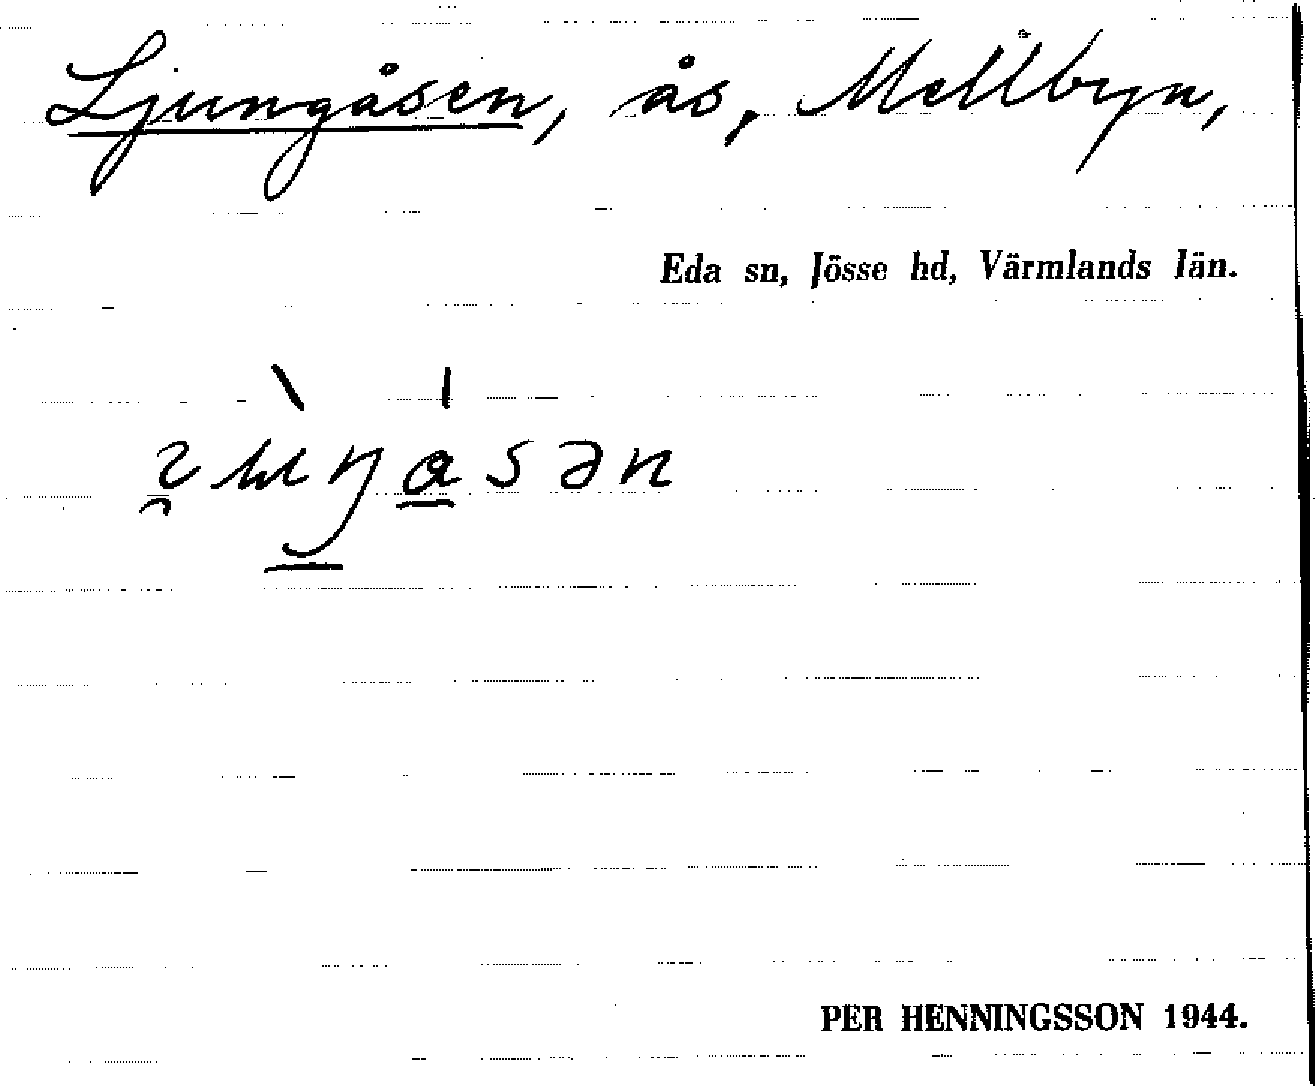 Ljungåsen, ås, Mellbyn,
Eda sn, Jösse hd, Värmlands län.
PER HENNINGSSON 1944.